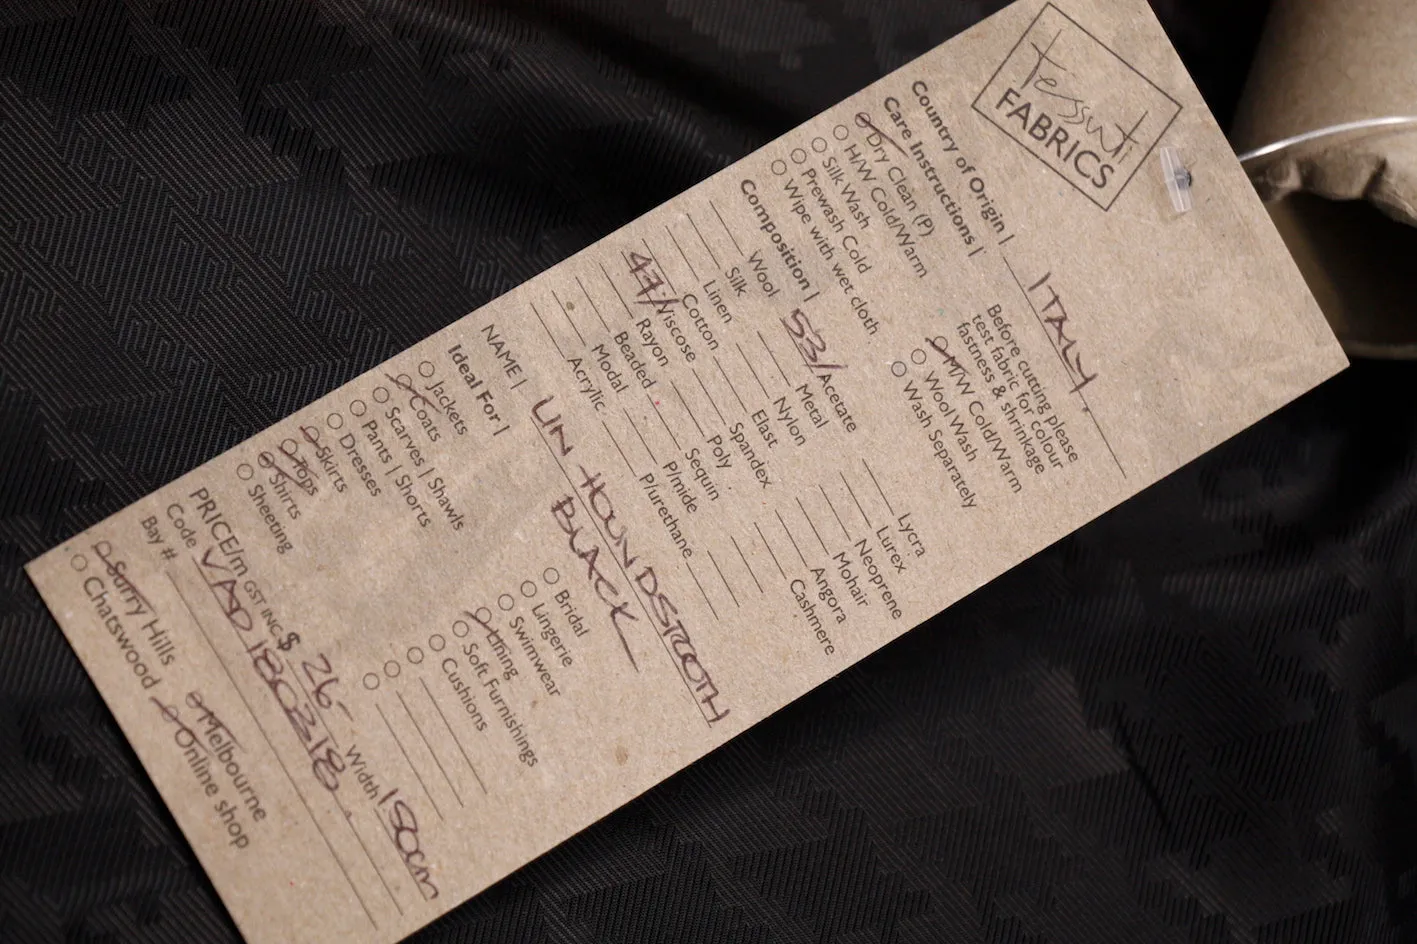 tessuti
FABRICS
Country of Origin | ITALY.
Care Instructions |
Dry Clean (P)
H/W Cold/Warm
Silk Wash
Prewash Cold
Wipe with wet cloth
Before cutting please
test fabric for colour
fastness & shrinkage
M/W Cold/Warm
Wool Wash
Wash Separately
Composition |
Wool
Silk
Linen
Cotton
47/ Viscose
Rayon
Beaded
Modal
Acrylic
53/ Acetate
Metal
Nylon
Elast
Spandex
Poly
Sequin
P/mide
P/urethane
Lycra
Lurex
Neoprene
Mohair
Angora
Cashmere
NAME | LIN HOUNDSTOOTH
BLACK
Ideal For |
Jackets
Coats
Scarves | Shawls
Pants | Shorts
Dresses
Skirts
Tops
Shirts
Sheeting
Bridal
Lingerie
Swimwear
Lining
Soft Furnishings
Cushions
PRICE/m GST INC $ 26- Width 150cm
Code VAD 180318.
Bay #
Surry Hills
Chatswood
Melbourne
Online shop